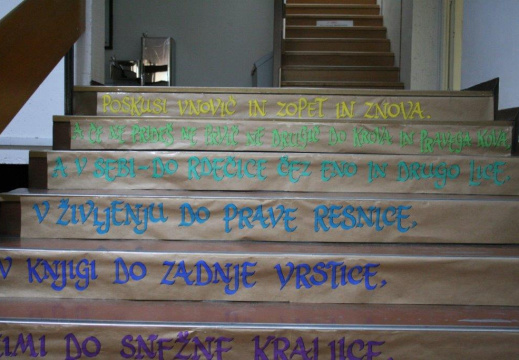 POSKUSI VNOVIČ IN ZOPET IN ZNOVA.
A ČE NE PRIDEŠ NE PRVIČ NE DRUGIČ DO KROVA IN PRAVEGA KOVA
A V SEBI-DO RDEČICE ČEZ ENO IN DRUGO LICE,
V ŽIVLJENJU DO PRAVE RESNICE,
V KNJIGI DO ZADNJE VRSTICE,
DO SNEŽNE KRALJICE,